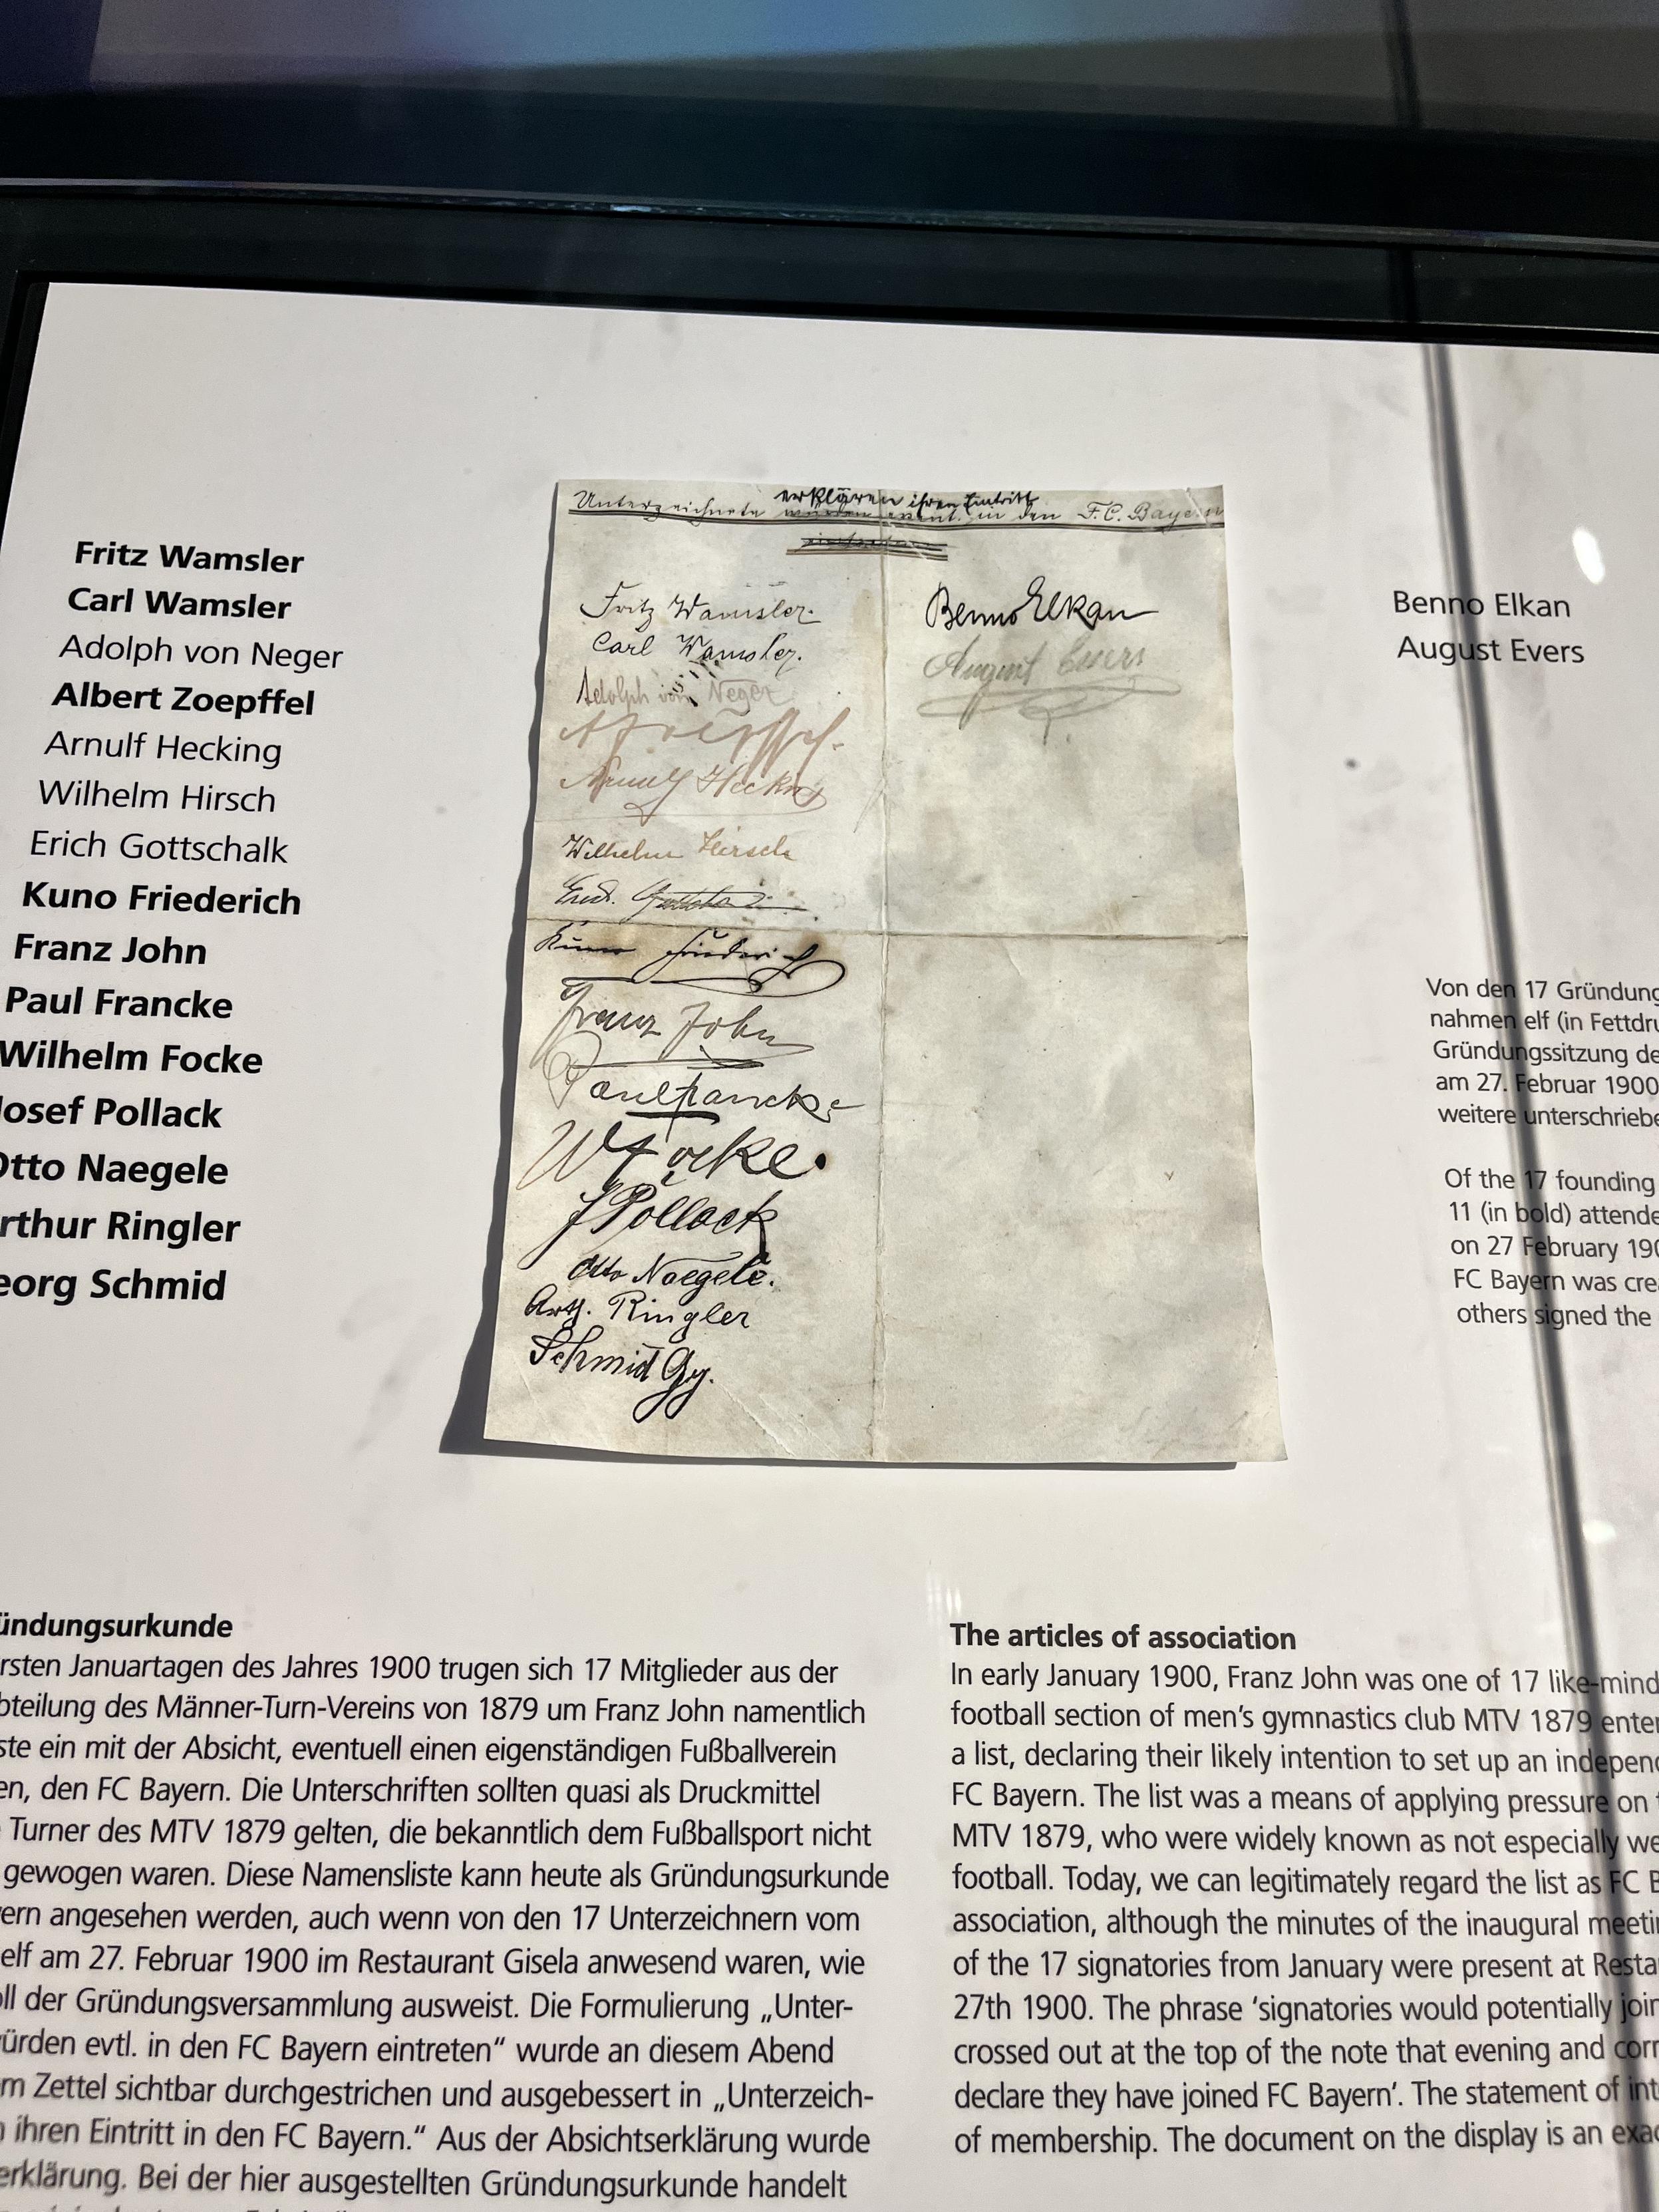 Fritz Wamsler
Carl Wamsler
Adolph von Neger
Albert Zoepffel
Arnulf Hecking
Wilhelm Hirsch
Erich Gottschalk
Kuno Friederich
Franz John
Paul Francke
Wilhelm Focke
Josef Pollack
Otto Naegele
rthur Ringler
eorg Schmid
erklären ihren Eintritt
Unterzeichnete würden event. in den F.C. Bayern
Fritz Wamsler.
Carl Wamsler.
Adolph von Neger
AZoepffel.
Arnulf Hecking
Wilhelm Hirsch
Kuno Friederich
Franz John
Paul Francke
W Focke.
J Pollack
Otto Naegele.
Arth. Ringler
Schmid Gg.
Benno Elkan
August Evers
Benno Elkan
August Evers
Von den 17 Gründung
nahmen elf (in Fettdru
Gründungssitzung de
am 27. Februar 1900
weitere unterschriebe
Of the 17 founding
11 (in bold) attende
on 27 February 190
FC Bayern was crea
others signed the
ündungsurkunde
rsten Januartagen des Jahres 1900 trugen sich 17 Mitglieder aus der
bteilung des Männer-Turn-Vereins von 1879 um Franz John namentlich
ste ein mit der Absicht, eventuell einen eigenständigen Fußballverein
en, den FC Bayern. Die Unterschriften sollten quasi als Druckmittel
Turner des MTV 1879 gelten, die bekanntlich dem Fußballsport nicht
gewogen waren. Diese Namensliste kann heute als Gründungsurkunde
ern angesehen werden, auch wenn von den 17 Unterzeichnern vom
elf am 27. Februar 1900 im Restaurant Gisela anwesend waren, wie
oll der Gründungsversammlung ausweist. Die Formulierung „Unter-
ürden evtl. in den FC Bayern eintreten“ wurde an diesem Abend
m Zettel sichtbar durchgestrichen und ausgebessert in „Unterzeich-
n ihren Eintritt in den FC Bayern.“ Aus der Absichtserklärung wurde
erklärung. Bei der hier ausgestellten Gründungsurkunde handelt
The articles of association
In early January 1900, Franz John was one of 17 like-mind
football section of men’s gymnastics club MTV 1879 enter
a list, declaring their likely intention to set up an independ
FC Bayern. The list was a means of applying pressure on
MTV 1879, who were widely known as not especially we
football. Today, we can legitimately regard the list as FC B
association, although the minutes of the inaugural meeti
of the 17 signatories from January were present at Resta
27th 1900. The phrase ‘signatories would potentially join
crossed out at the top of the note that evening and corr
declare they have joined FC Bayern’. The statement of int
of membership. The document on the display is an exac